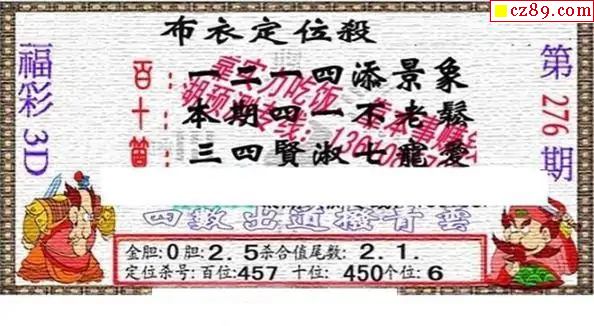 cz89.com
布衣定位殺
福彩3D
第276期
百：一二一四添景象
十：本期四一不老鬆
個：三四賢淑七寵愛
靠安力吃饭
四數出道撥青雲
金胆:0胆:2.5杀合值尾数:2.1.
定位杀号:百位:457 十位:450个位:6